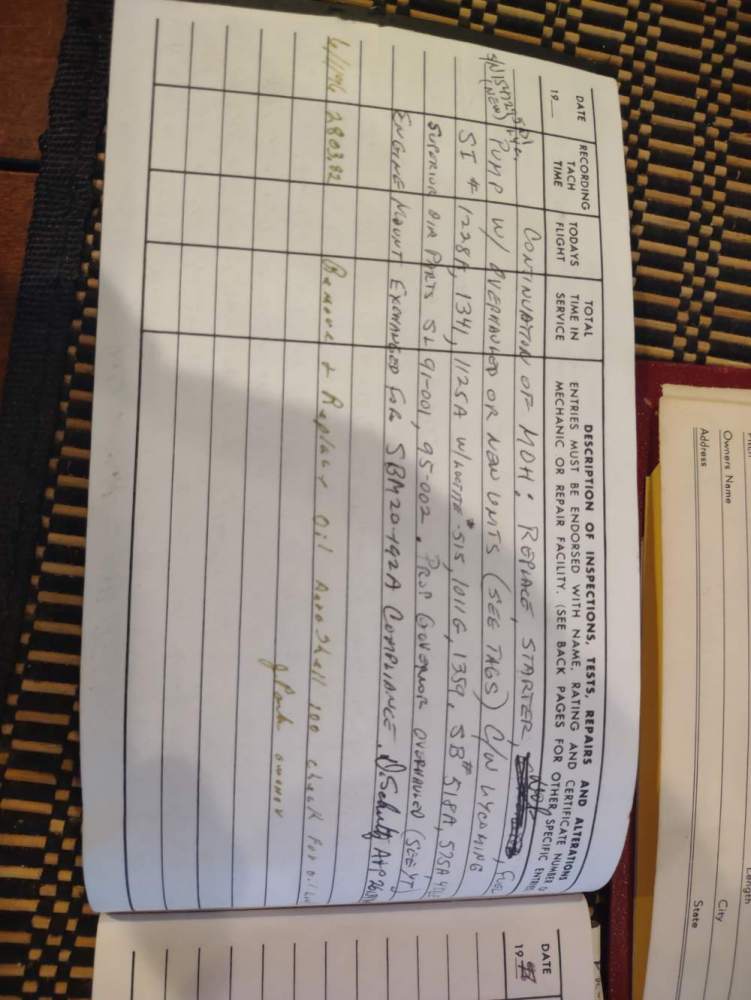 DATE
19__
RECORDING
TACH
TIME
TODAYS
FLIGHT
TOTAL
TIME IN
SERVICE
DESCRIPTION OF INSPECTIONS, TESTS, REPAIRS AND ALTERATIONS
ENTRIES MUST BE ENDORSED WITH NAME, RATING AND CERTIFICATE NUMBER
MECHANIC OR REPAIR FACILITY. (SEE BACK PAGES FOR OTHER SPECIFIC ENTRIES
CONTINUATION OF MOH: REPLACE STARTER,
(NEW) PUMP W/ OVERHAULED OR NEW UNITS (SEE TAGS) C/W LYCOMING
, FUEL
SI # 1228A, 1341, 1125A W/LOCTITE 515, 1011G, 1359, SB# 518A, 525A
SUPERIOR AIR PARTS SL 91-001, 95-002. PROP GOVERNOR OVERHAULED (SEE YT)
ENGINE MOUNT EXCHANGED FOR SBM20-792A COMPLIANCE. D. Schultz A+P
6/1/96 2803.92 Remove & Replace Oil AeroShell 100 check for oil
J Park owner
DATE
19
Owners Name
Address
City
State
Length